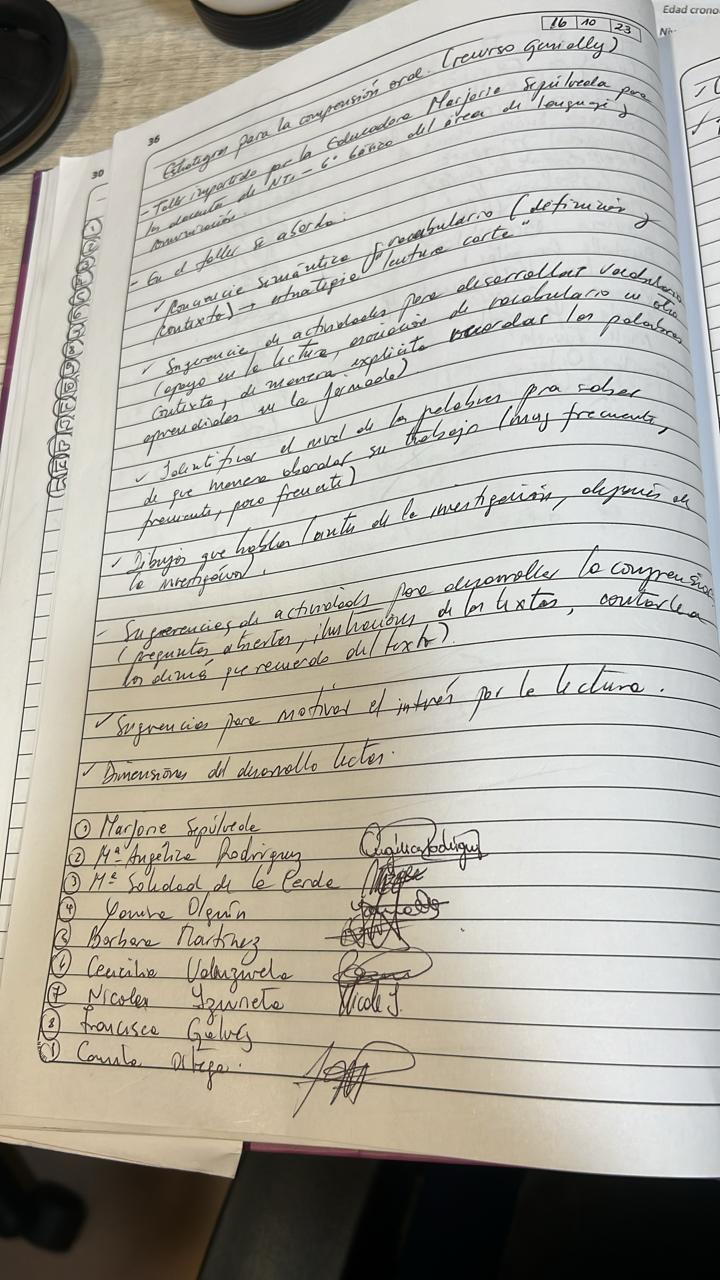 Edad crono
16 10 23
36
30
Estrategias para la comprensión oral. (recurso Genially)
- Taller impartido por la Educadora Marjorie Sepúlveda para
los docentes de NT1 - 6° básico del área de lenguaje y
comunicación.
- En el taller se aborda:
✓ Conciencia semántica y vocabulario (definición y
contexto) → estrategia "lectura corta"
✓ Sugerencia de actividades para desarrollar vocabulario
(apoyo en la lectura, asociación de vocabulario en otro
contexto, de manera explícita recordar las palabras
aprendidas en la jornada)
✓ Identificar el nivel de las palabras para saber
de que manera abordar su trabajo (muy frecuente,
frecuente, poco frecuente)
✓ Dibujos que hablan (antes de la investigación, después de
la investigación).
- Sugerencias de actividades para desarrollar la comprensión
(preguntas abiertas, ilustraciones de los textos, contarle a
los demás que recuerdo del texto).
✓ Sugerencias para motivar el interés por la lectura.
✓ Dimensiones del desarrollo lector.
① Marjorie Sepúlveda
② Mª Angélica Rodríguez Angélica Rodríguez
③ Mª Soledad de la Cerda
④ Olguín
⑤ Bárbara Martínez
⑥ Cecilia Valenzuela
⑦ Nicole Izurieta Nicole I.
⑧ Francisca Gálvez
⑨ Camila Ortega.